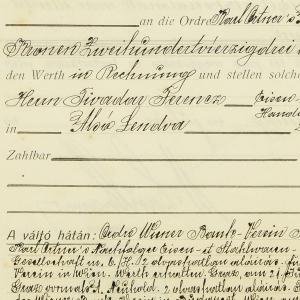 an die Ordre Karl Ortner's
Kronen Zweihundertvierzigdrei
den Werth in Rechnung und stellen solche
Herrn Tivadar Ferencz Eisen-
Handl
in Alsó Lendva
Zahlbar
A váltó hátán: Ordre Wiener Bank-Verein
Karl Ortner's Nachfolger Eisen- et Stahlwaren-
Gesellschaft m. b. H. 2 olvashatlan aláírás
Verein in Wien. Werth erhalten. Graz, am
Graz 2 olvashatlan aláírás